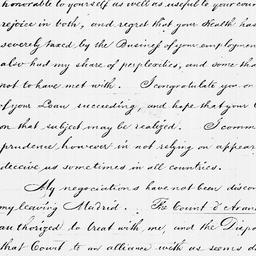 honorable to yourself as well as useful to your coun
rejoice in both, and regret that your Health has
severely taxed by the Business of your employmen
also had my share of perplexities, and some tha
not to have met with. I congratulate you on
of your Loan succeeding, and hope that your
on that subject may be realized. I comm
prudence however in not relying on appear
deceive us sometimes in all countries.
My negociations have not been discon
my leaving Madrid. The Count d'Aran
authorized to treat with me, and the Dispo
that Court to an alliance with us seems d